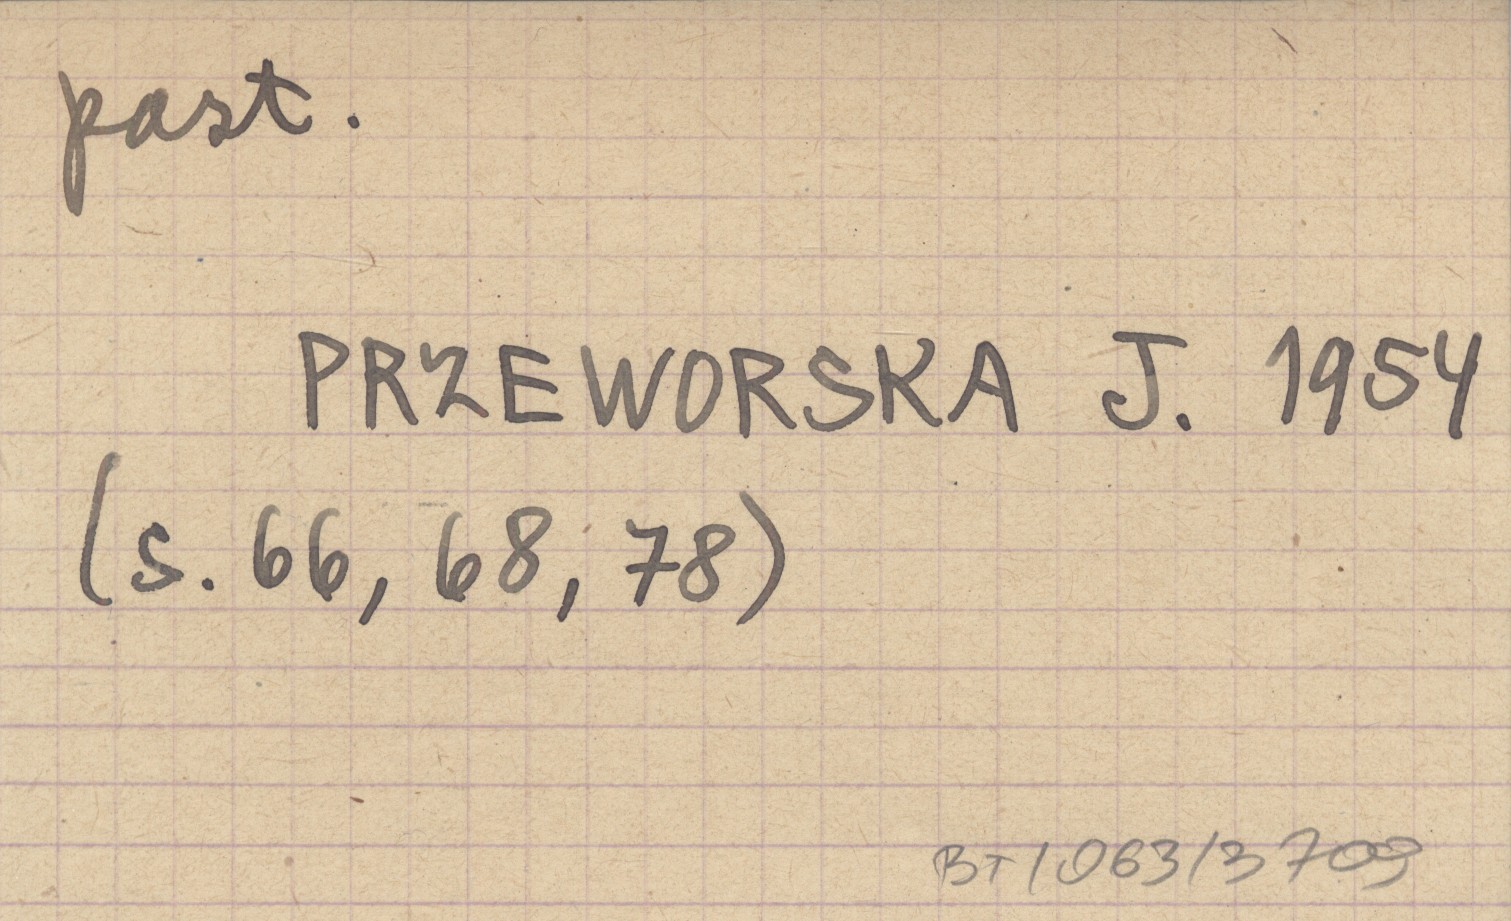 past.
PRZEWORSKA J. 1954
(s. 66, 68, 78)
BT/063/3709